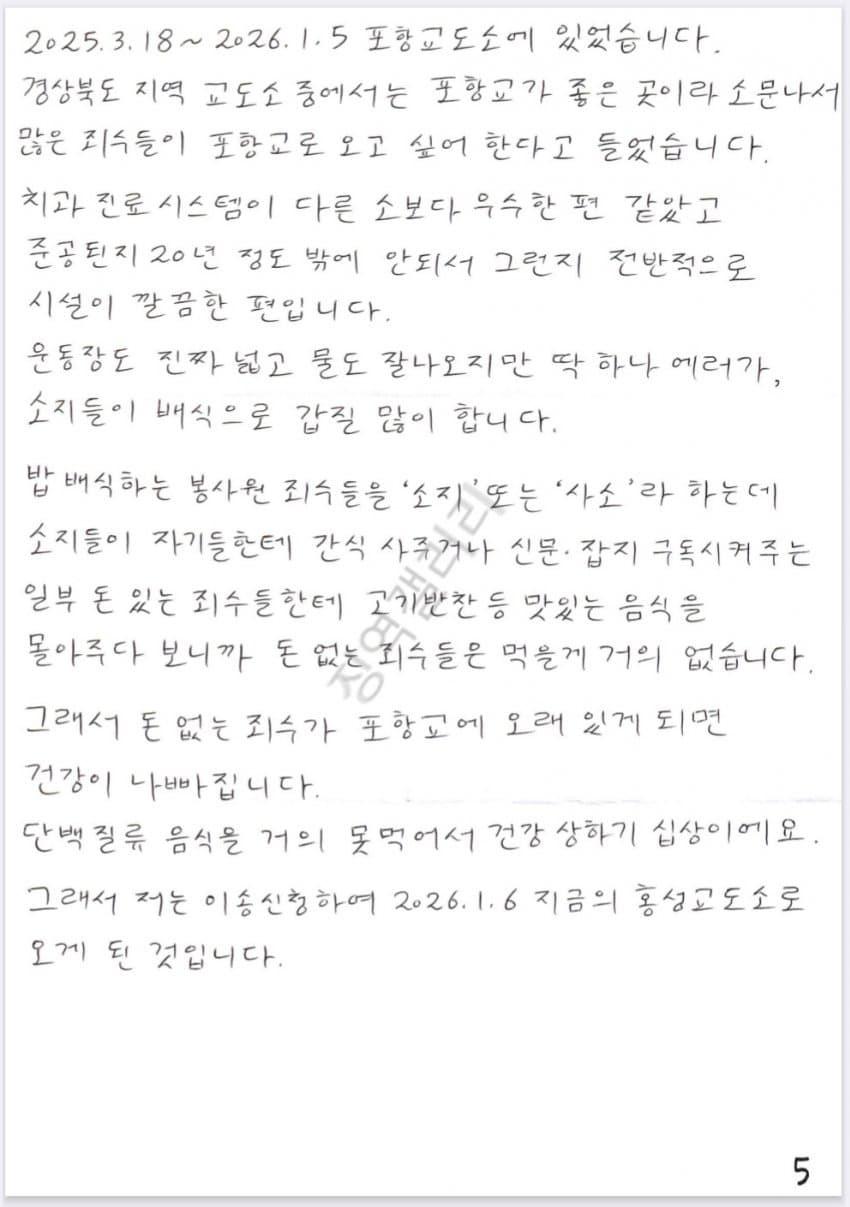 2025.3.18~2026.1.5 포항교도소에 있었습니다.
경상북도 지역 교도소 중에서는 포항교가 좋은 곳이라 소문나서
많은 죄수들이 포항교로 오고 싶어 한다고 들었습니다.
치과 진료 시스템이 다른 소보다 우수한 편 같았고
준공된지 20년 정도 밖에 안되서 그런지 전반적으로
시설이 깔끔한 편입니다.
운동장도 진짜 넓고 물도 잘나오지만 딱 하나 에러가,
소지들이 배식으로 갑질 많이 합니다.
밥 배식하는 봉사원 죄수들을 '소지' 또는 '사소'라 하는데
소지들이 자기들한테 간식 사주거나 신문·잡지 구독시켜주는
일부 돈 있는 죄수들한테 고기반찬등 맛있는 음식을
몰아주다 보니까 돈 없는 죄수들은 먹을게 거의 없습니다.
그래서 돈 없는 죄수가 포항교에 오래 있게 되면
건강이 나빠집니다.
단백질류 음식을 거의 못먹어서 건강 상하기 십상이에요.
그래서 저는 이송신청하여 2026.1.6 지금의 홍성교도소로
오게 된 것입니다.
징역갤러리
5